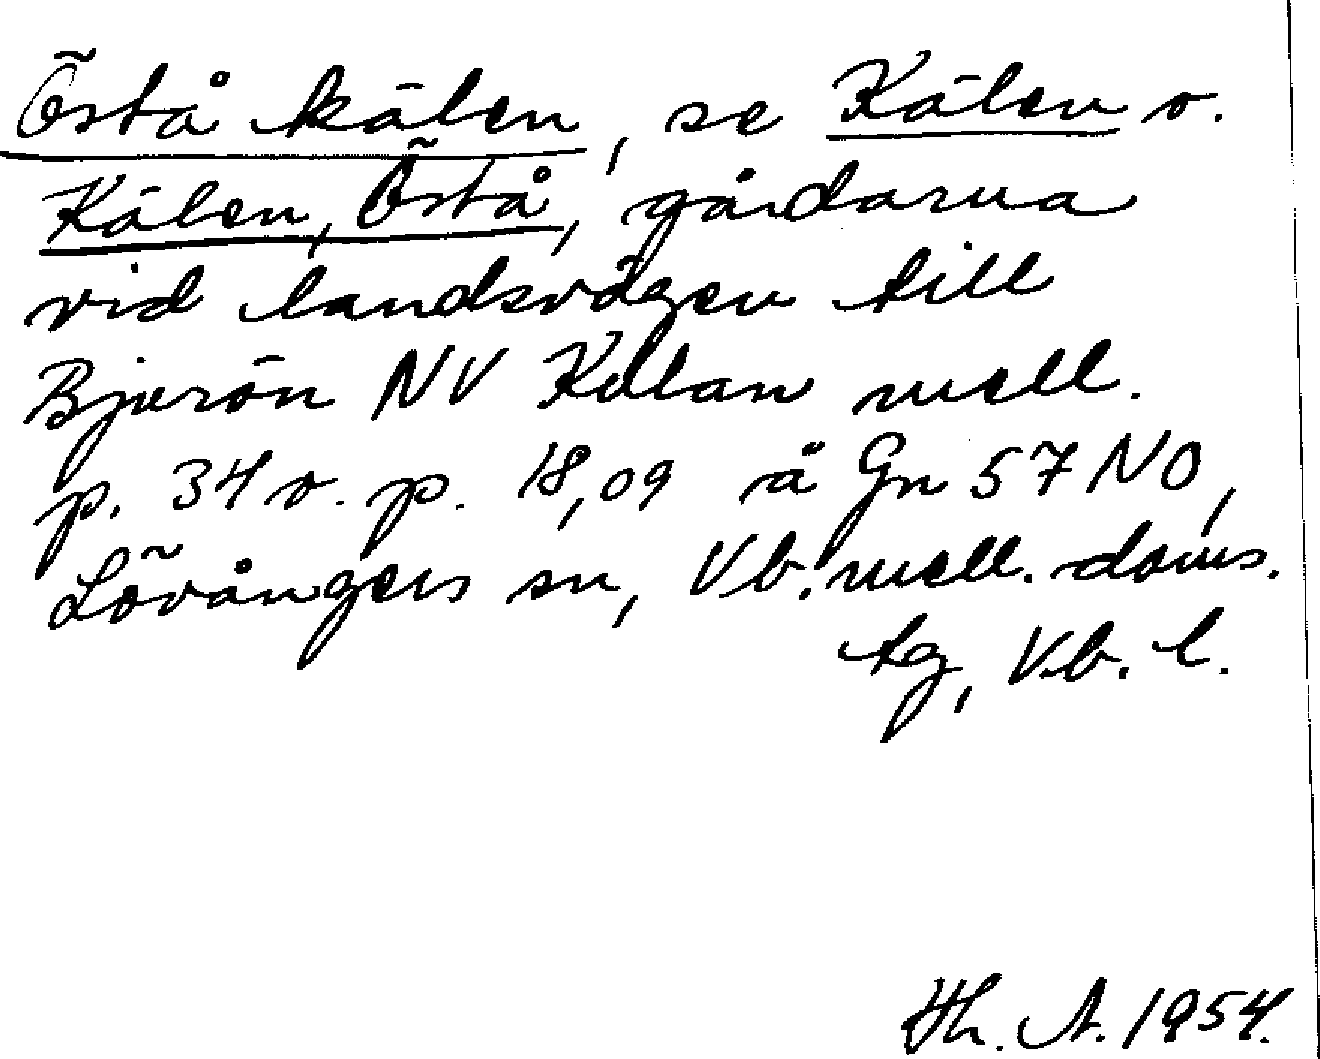 Östå kälen, se Kälen o.
Kälen, Östå, gårdarna
vid landsvägen till
Bjurön NV Kålan mell.
p. 34 o. p. 18,09 å Gn 57 NO,
Lövångers sn, Vb. mell. doms.
tg, Vb. l.
Th. A. 1954.